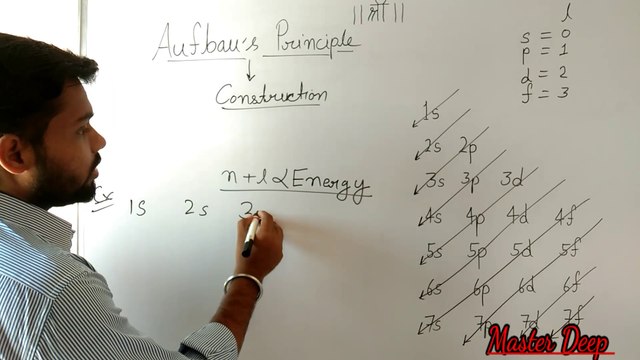 ||श्री||
Aufbau's Principle
Construction
n+l α Energy
Ex
1s 2s 2
l
s = 0
p = 1
d = 2
f = 3
1s
2s 2p
3s 3p 3d
4s 4p 4d 4f
5s 5p 5d 5f
6s 6p 6d 6f
7s 7p 7d 7f
Master Deep